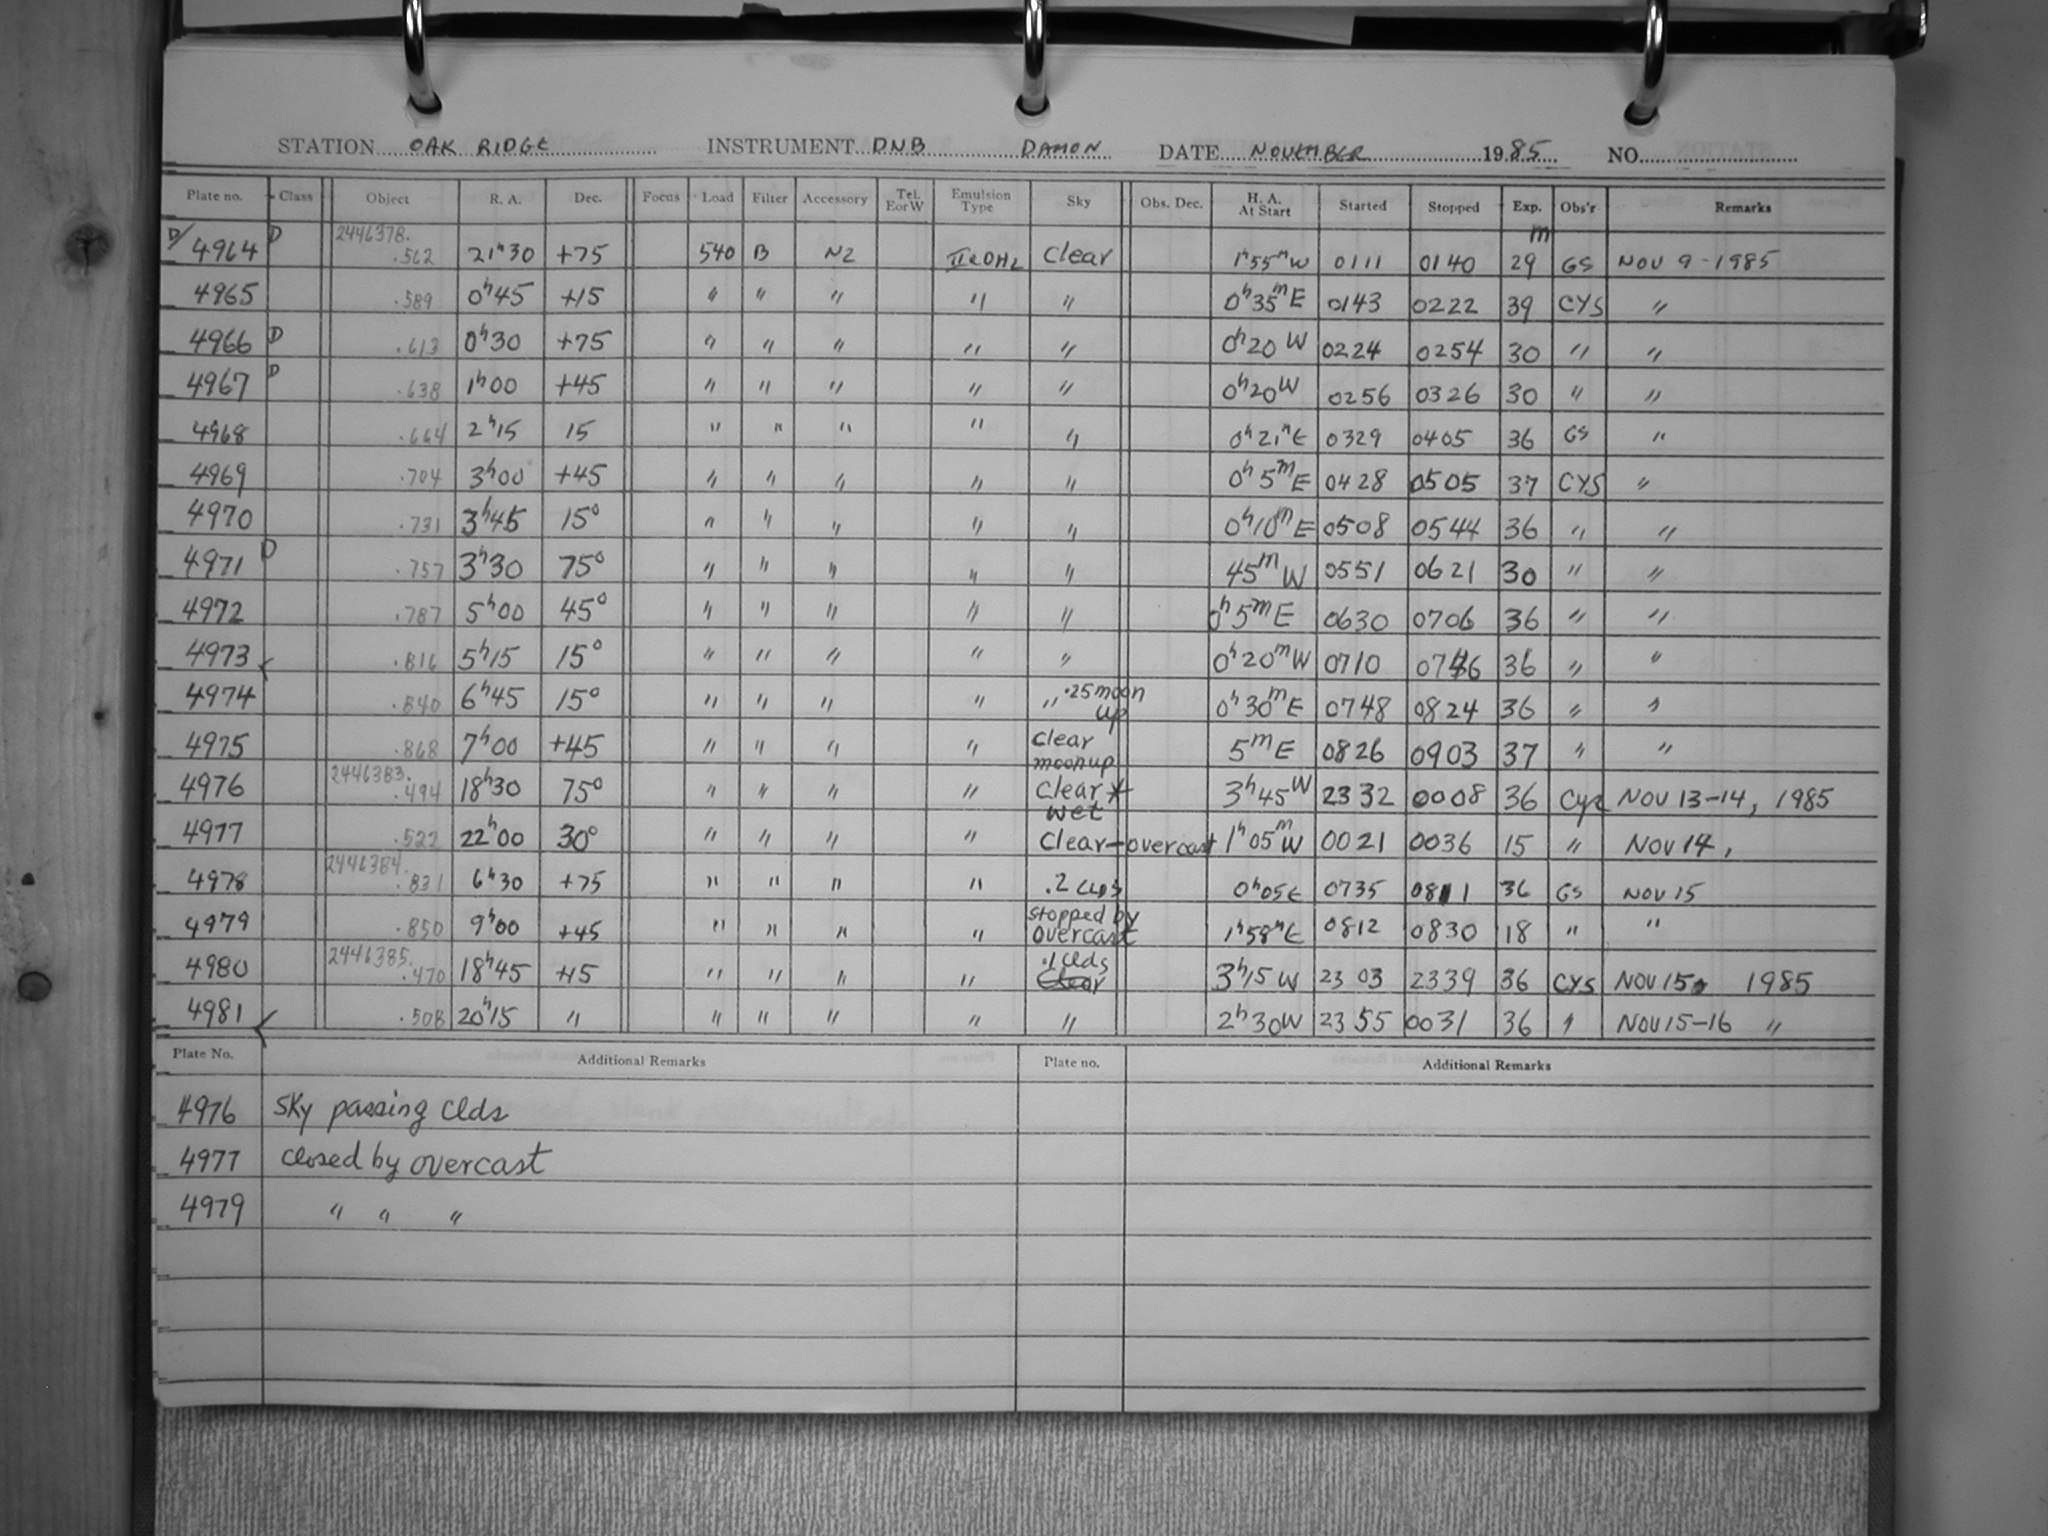 STATION OAK RIDGE INSTRUMENT DNB DAMON DATE NOVEMBER 1985 NO.
Plate no. Class Object R. A. Dec. Focus Load Filter Accessory Tel. E or W Emulsion Type Sky Obs. Dec. H. A. At Start Started Stopped Exp. Obs'r Remarks
D/4964 D 2446378. .562 21h30 +75 540 B N2 IIaOHL Clear 1h55mW 0111 0140 29m GS NOV 9-1985
4965 .589 0h45 +15 " " " " " 0h35mE 0143 0222 39 CYS "
4966 D .613 0h30 +75 " " " " " 0h20W 0224 0254 30 " "
4967 D .638 1h00 +45 " " " " " 0h20W 0256 0326 30 " "
4968 .664 2h15 15 " " " " " 0h21mE 0329 0405 36 GS "
4969 .704 3h00 +45 " " " " " 0h5mE 0428 0505 37 CYS "
4970 .731 3h45 15° " " " " " 0h10mE 0508 0544 36 " "
4971 D .757 3h30 75° " " " " " 45mW 0551 0621 30 " "
4972 .787 5h00 45° " " " " " 0h5mE 0630 0706 36 " "
4973 .816 5h15 15° " " " " " 0h20mW 0710 0746 36 " "
4974 .840 6h45 15° " " " " " .25 moon up 0h30mE 0748 0824 36 " "
4975 .868 7h00 +45 " " " " Clear moonup 5mE 0826 0903 37 " "
4976 2446383. .494 18h30 75° " " " " Clear* wet 3h45W 2332 0008 36 CYS NOV 13-14, 1985
4977 .522 22h00 30° " " " " Clear-overcast 1h05mW 0021 0036 15 " NOV 14,
4978 2446384. .831 6h30 +75 " " " " .2 clds 0h05E 0735 0811 36 GS NOV 15
4979 .850 9h00 +45 " " " " stopped by overcast 1h58mE 0812 0830 18 " "
4980 2446385. .470 18h45 +15 " " " " .1 clds Clear 3h15W 2303 2339 36 CYS NOV 15, 1985
4981 .508 20h15 " " " " " " 2h30W 2355 0031 36 " NOV 15-16 "
Plate No. Additional Remarks Plate no. Additional Remarks
4976 Sky passing clds
4977 closed by overcast
4979 " " "